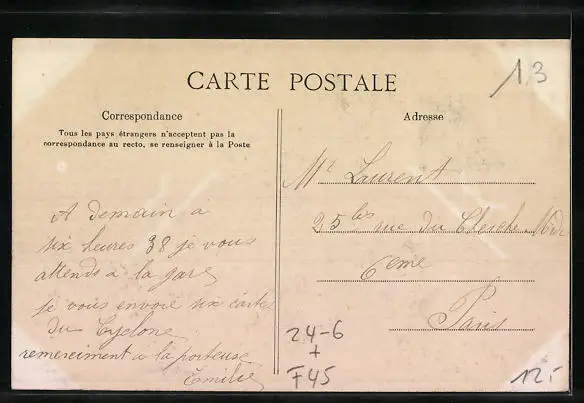 CARTE POSTALE
13
Correspondance
Tous les pays étrangers n'acceptent pas la
correspondance au recto, se renseigner à la Poste
A demain à
six heures 38 je vous
attends à la gare
je vous envoie six cartes
du Cyclone
remerciment a la porteuse
Emilie
Adresse
Mr Laurent
25 bis rue du Cherche Midi
6eme
Paris
24-6
+
F45
12,-